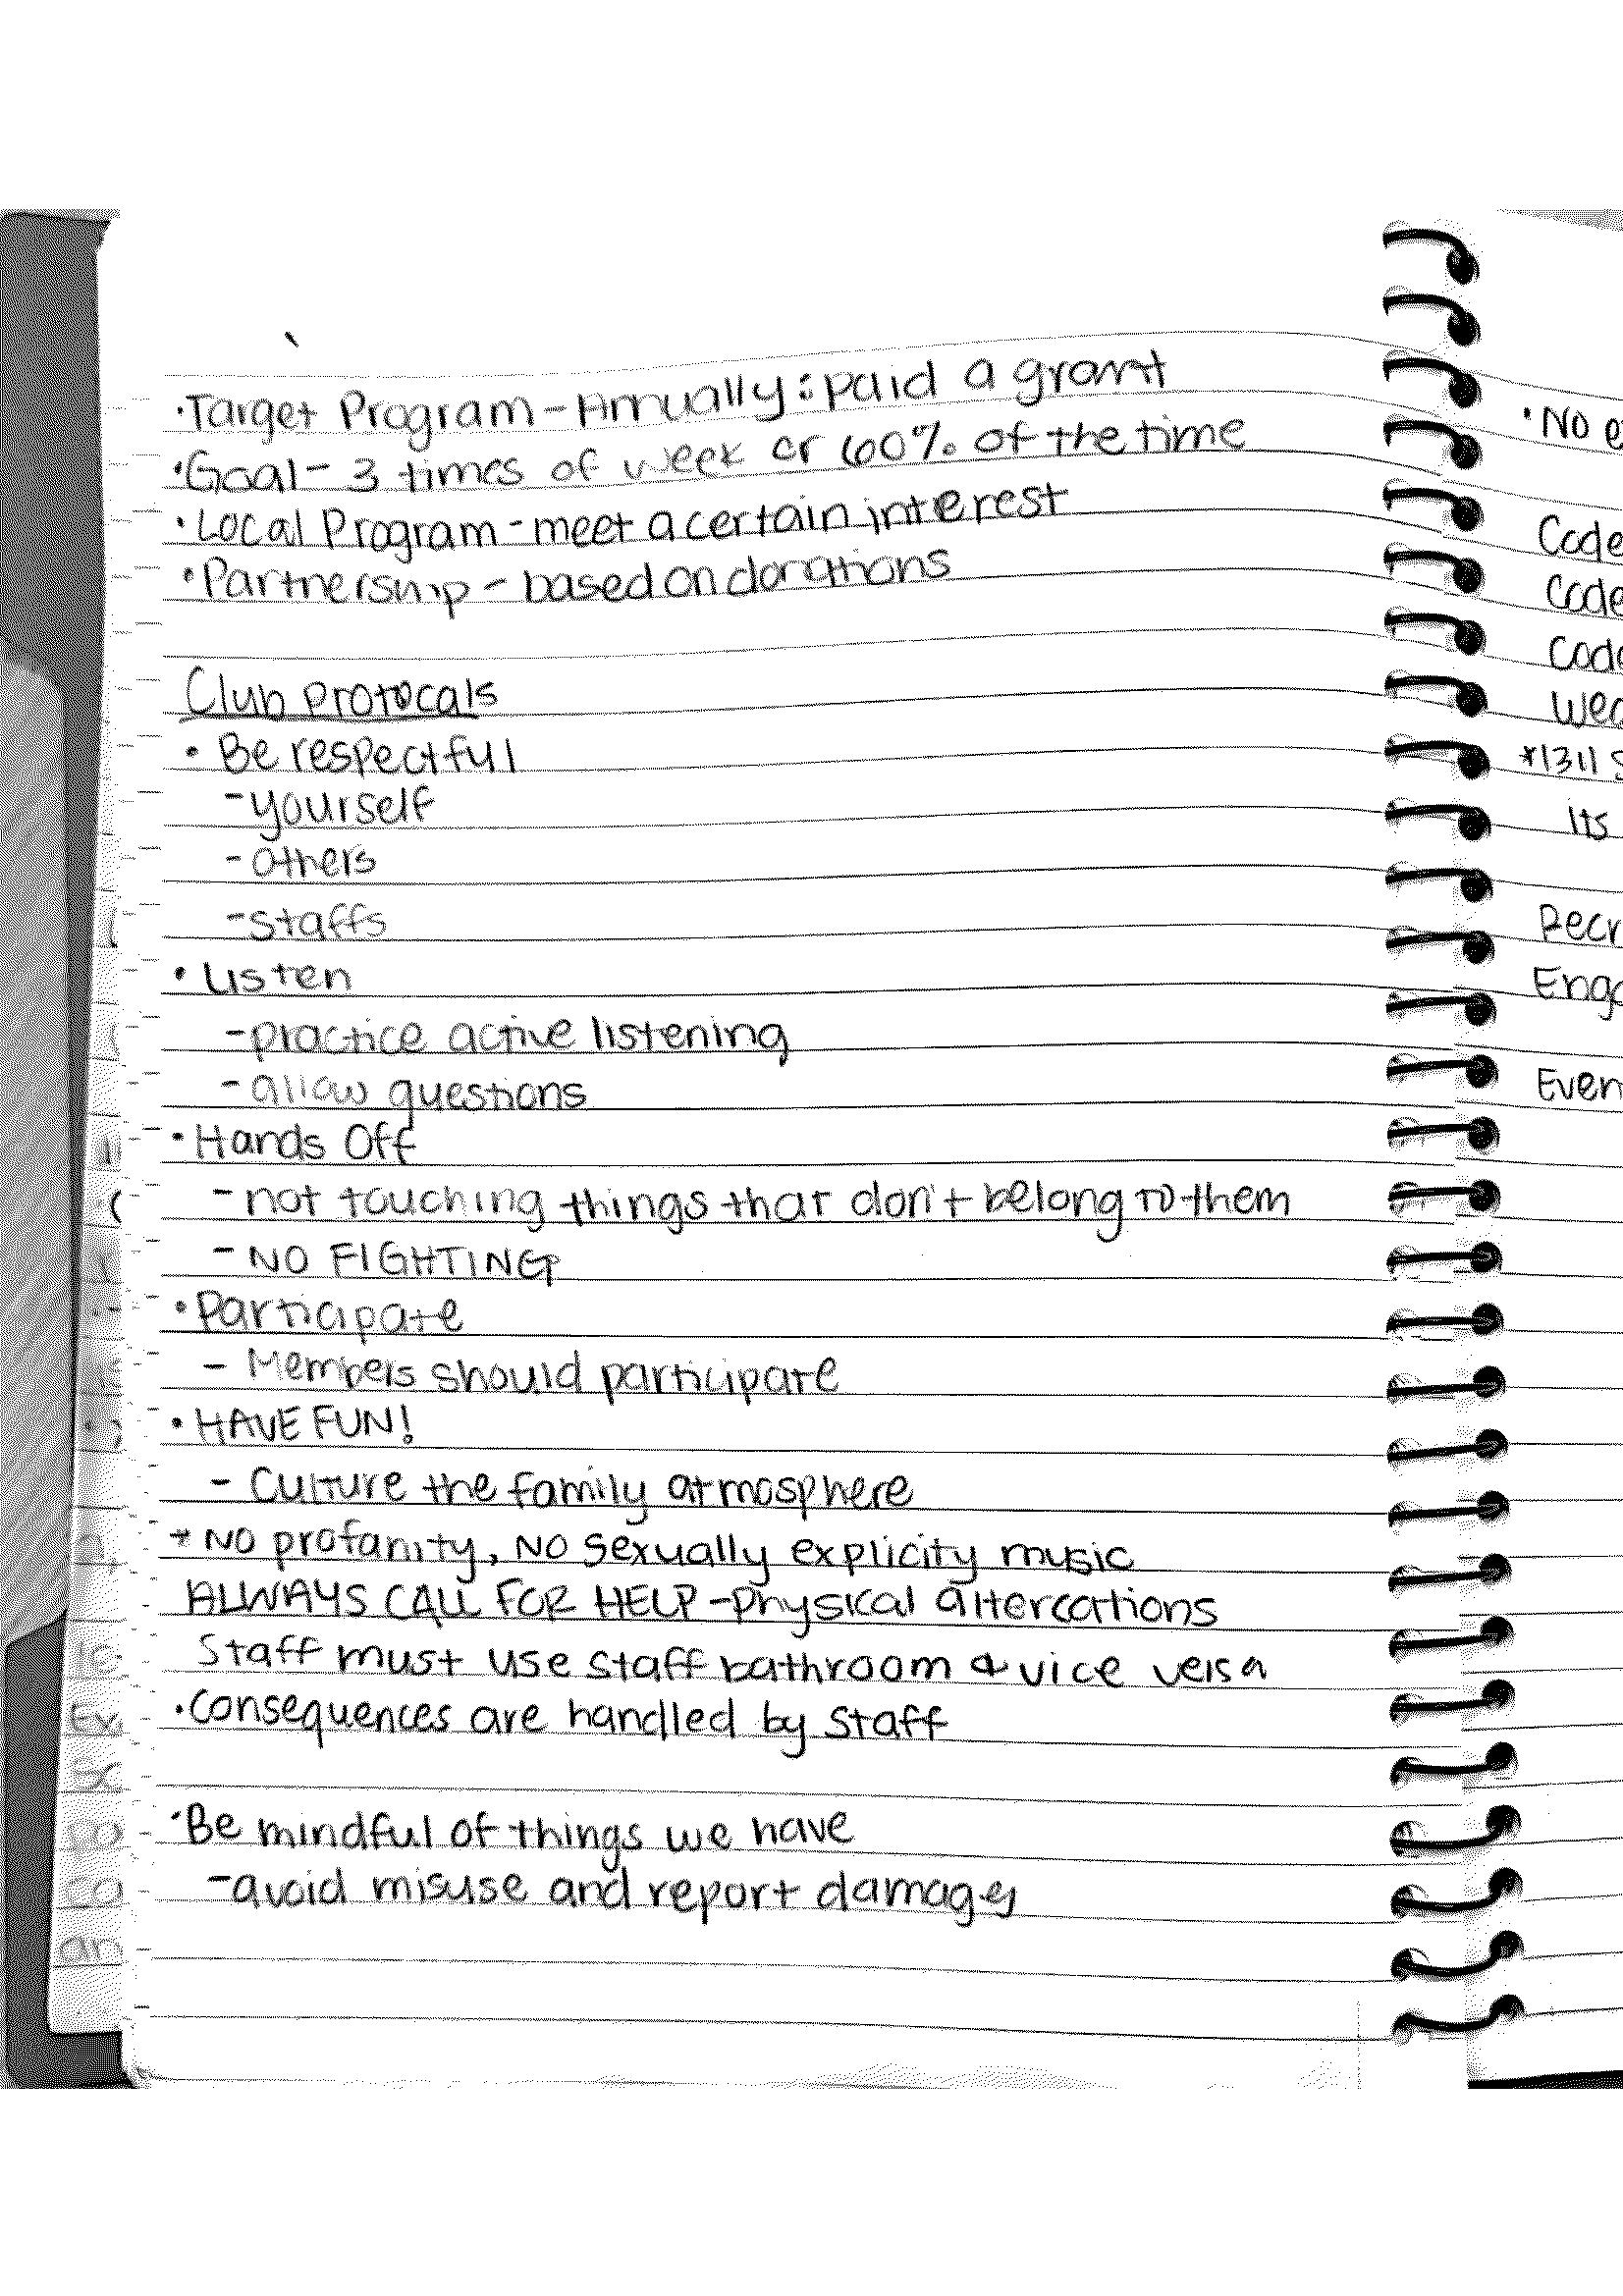 ·Target Program - Annually: paid a grant
·Goal - 3 times of week or 60% of the time
·Local Program - meet a certain interest
·Partnership - based on donations
Club Protocals
· Be respectful
- yourself
- others
- staffs
· Listen
- practice active listening
- allow questions
· Hands Off
- not touching things that don't belong to them
- NO FIGHTING
· Participate
- Members should participate
· HAVE FUN!
- Culture the family atmosphere
* No profanity, NO sexually explicity music
ALWAYS CALL FOR HELP - physical altercations
Staff must use staff bathroom & vice versa
· Consequences are handled by staff
·Be mindful of things we have
- avoid misuse and report damages
·No
Code
Code
Code
*1311
Its